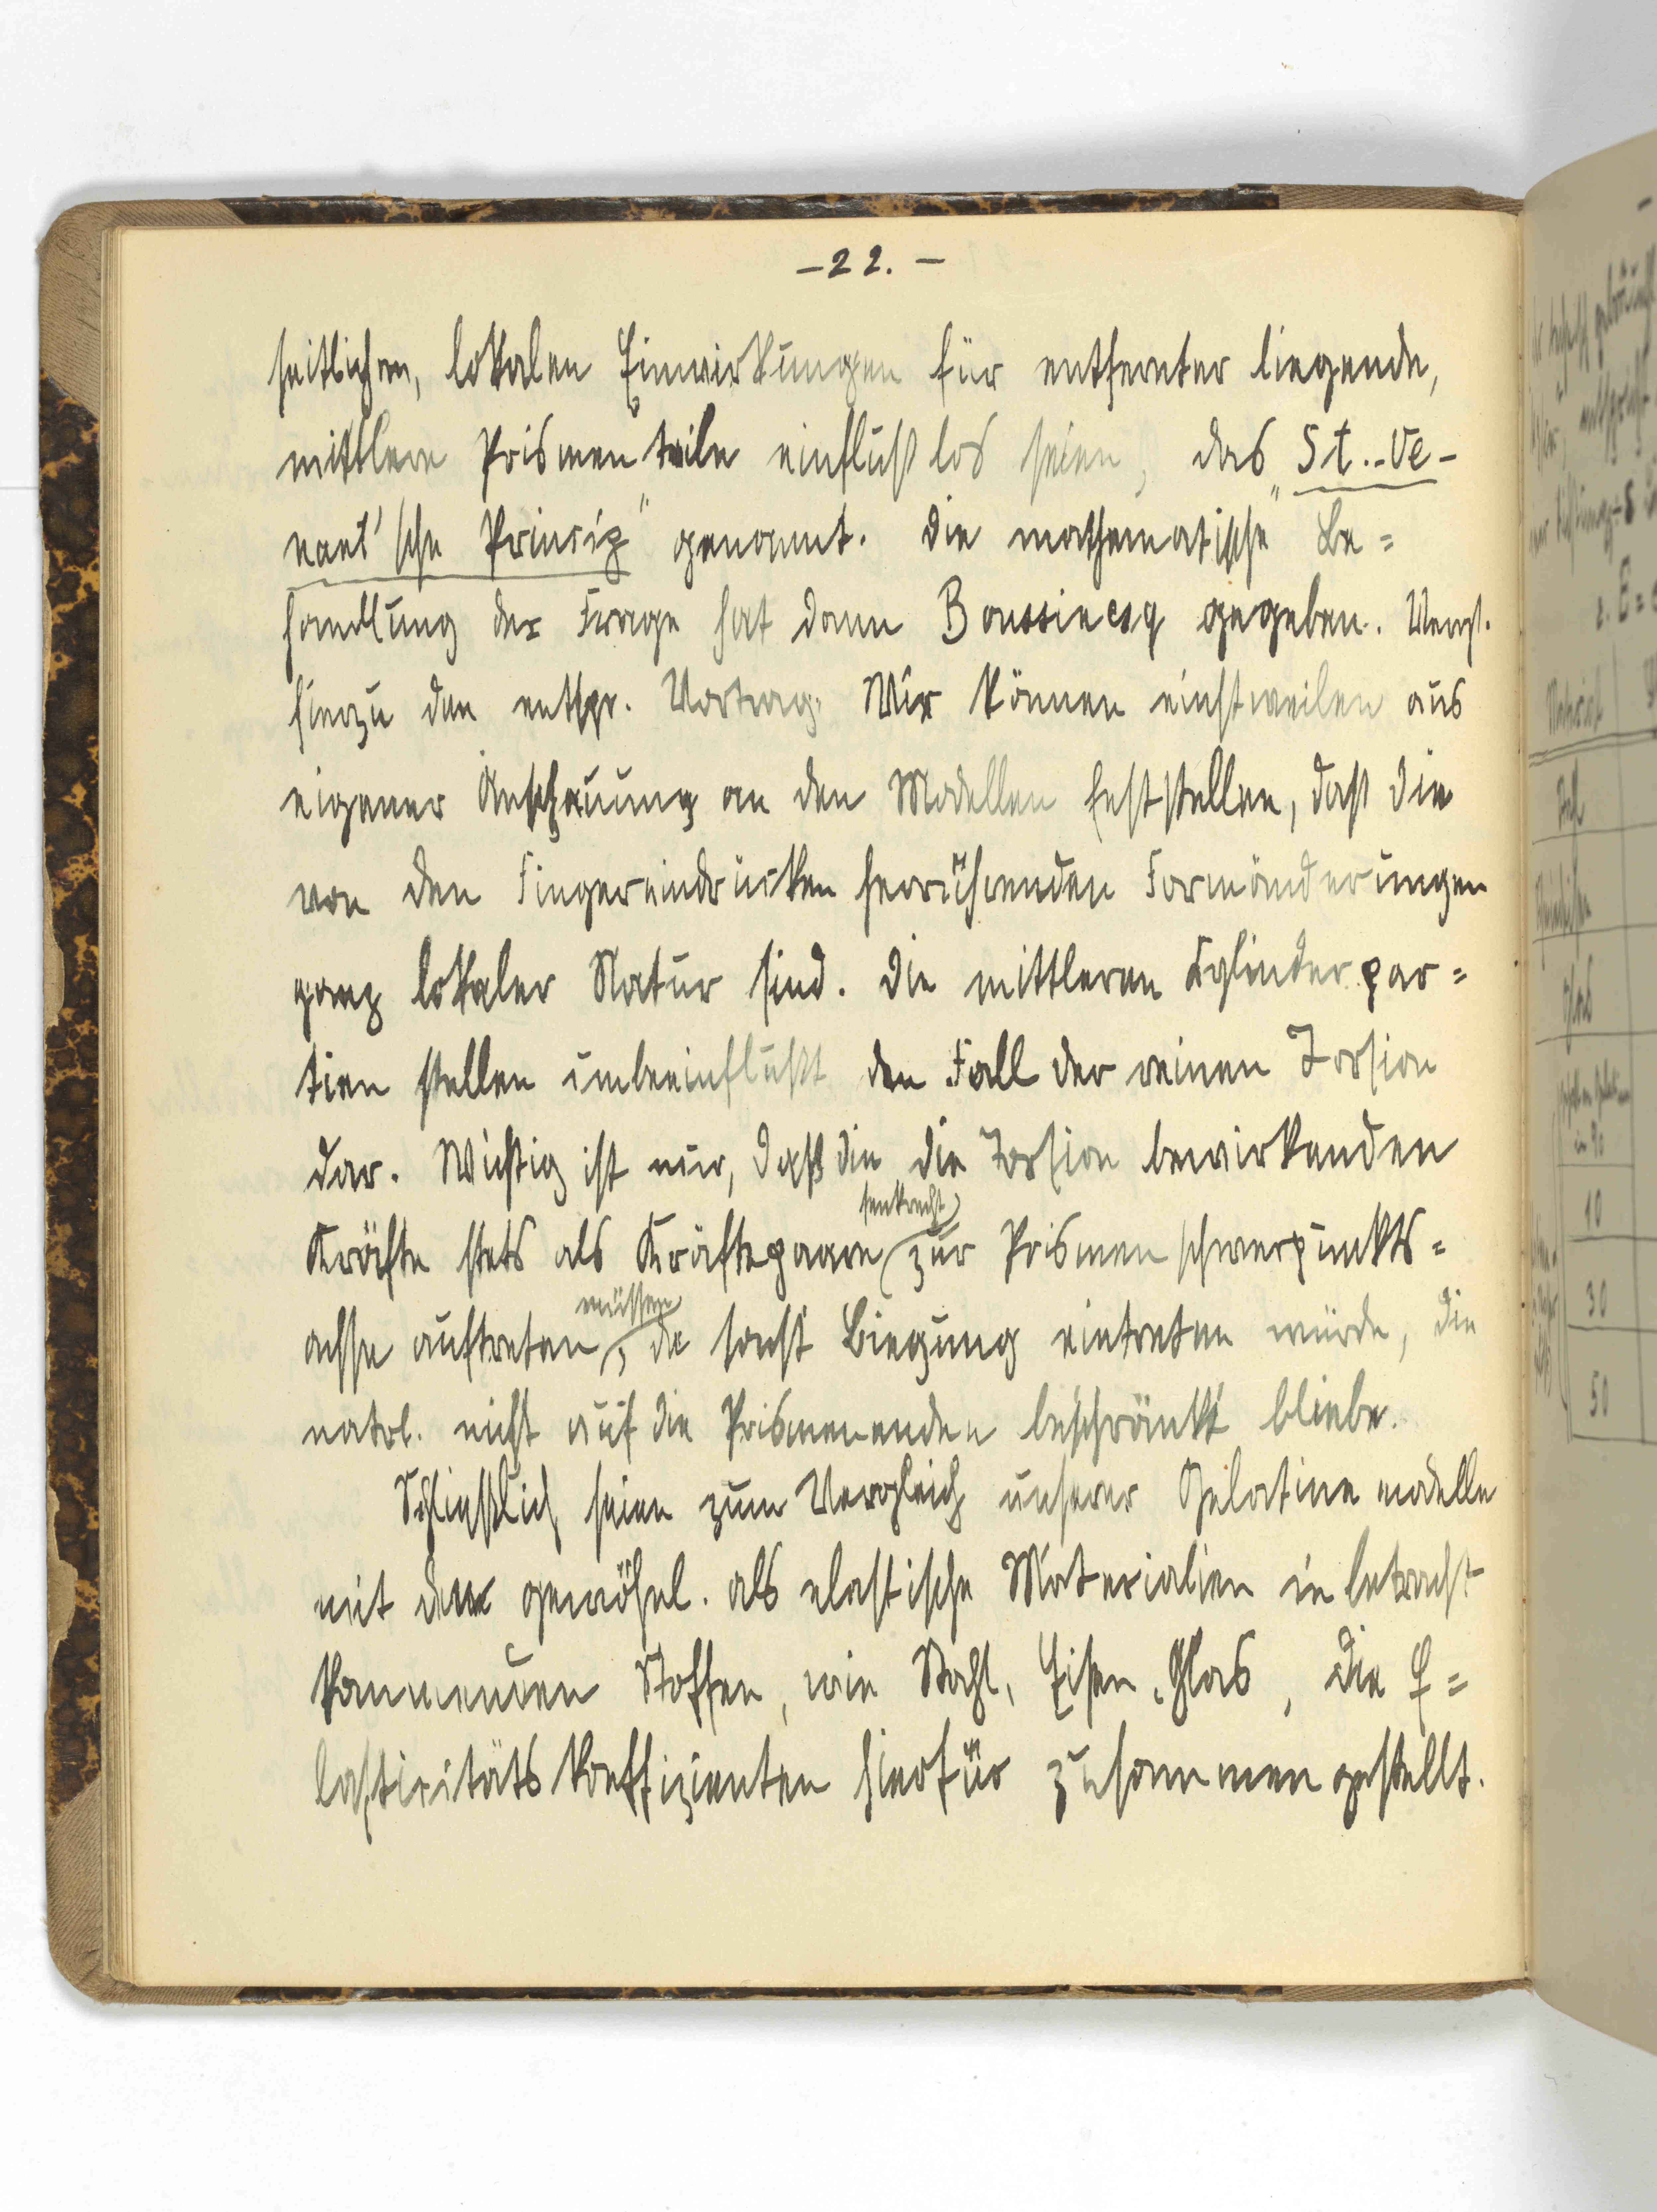 -22.-
seitlichen, lokalen Einwirkungen für entfernter liegende,
mittlere Prismenteile einflußlos seien, das „St.-Ve-
nant'sche Princip" genannt. Die mathematische Be=
handlung der Frage hat dann Boussinesq gegeben. Vergl.
hierzu den entspr. Vortrag. Wir können einstweilen aus
eigener Anschauung an den Modellen feststellen, daß die
von den Fingereindrücken herrührenden Formänderungen
ganz lokaler Natur sind. Die mittleren Cylinderpar=
tien stellen unbeeinflußt den Fall der reinen Torsion
dar. Wichtig ist nur, daß die die Torsion bewirkenden
senkrecht
Kräfte stets als Kräftepaare zur Prismenschwerpunkts=
müssen
achse auftreten, da sonst Biegung eintreten würde, die
natrl. nicht auf die Prismenenden beschränkt bliebe.
Schließlich seien zum Vergleich unserer Gelatinemodelle
mit den gewöhnl. als elastische Materialien in betracht
kommenden Stoffen, wie Stahl, Eisen, Glas, die E=
lasticitätskoeffizienten hierfür zusammengestellt.
10
30
50